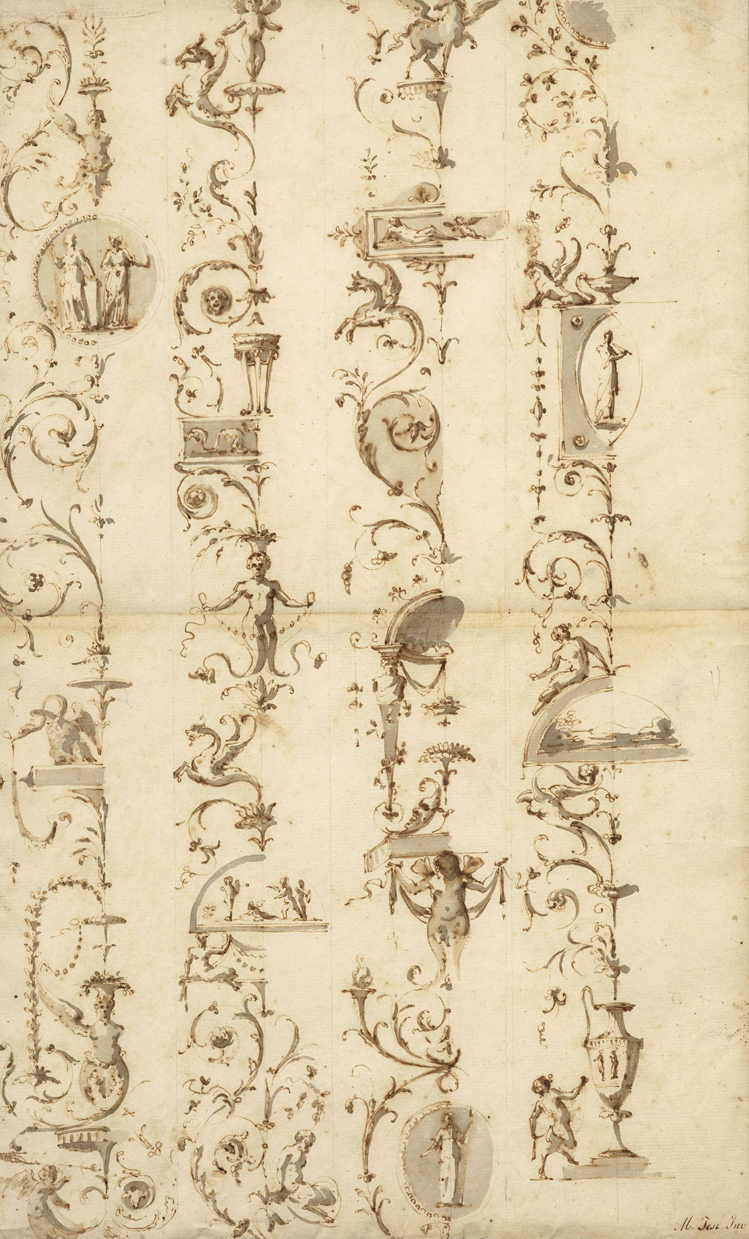 M. Tesi. Inv